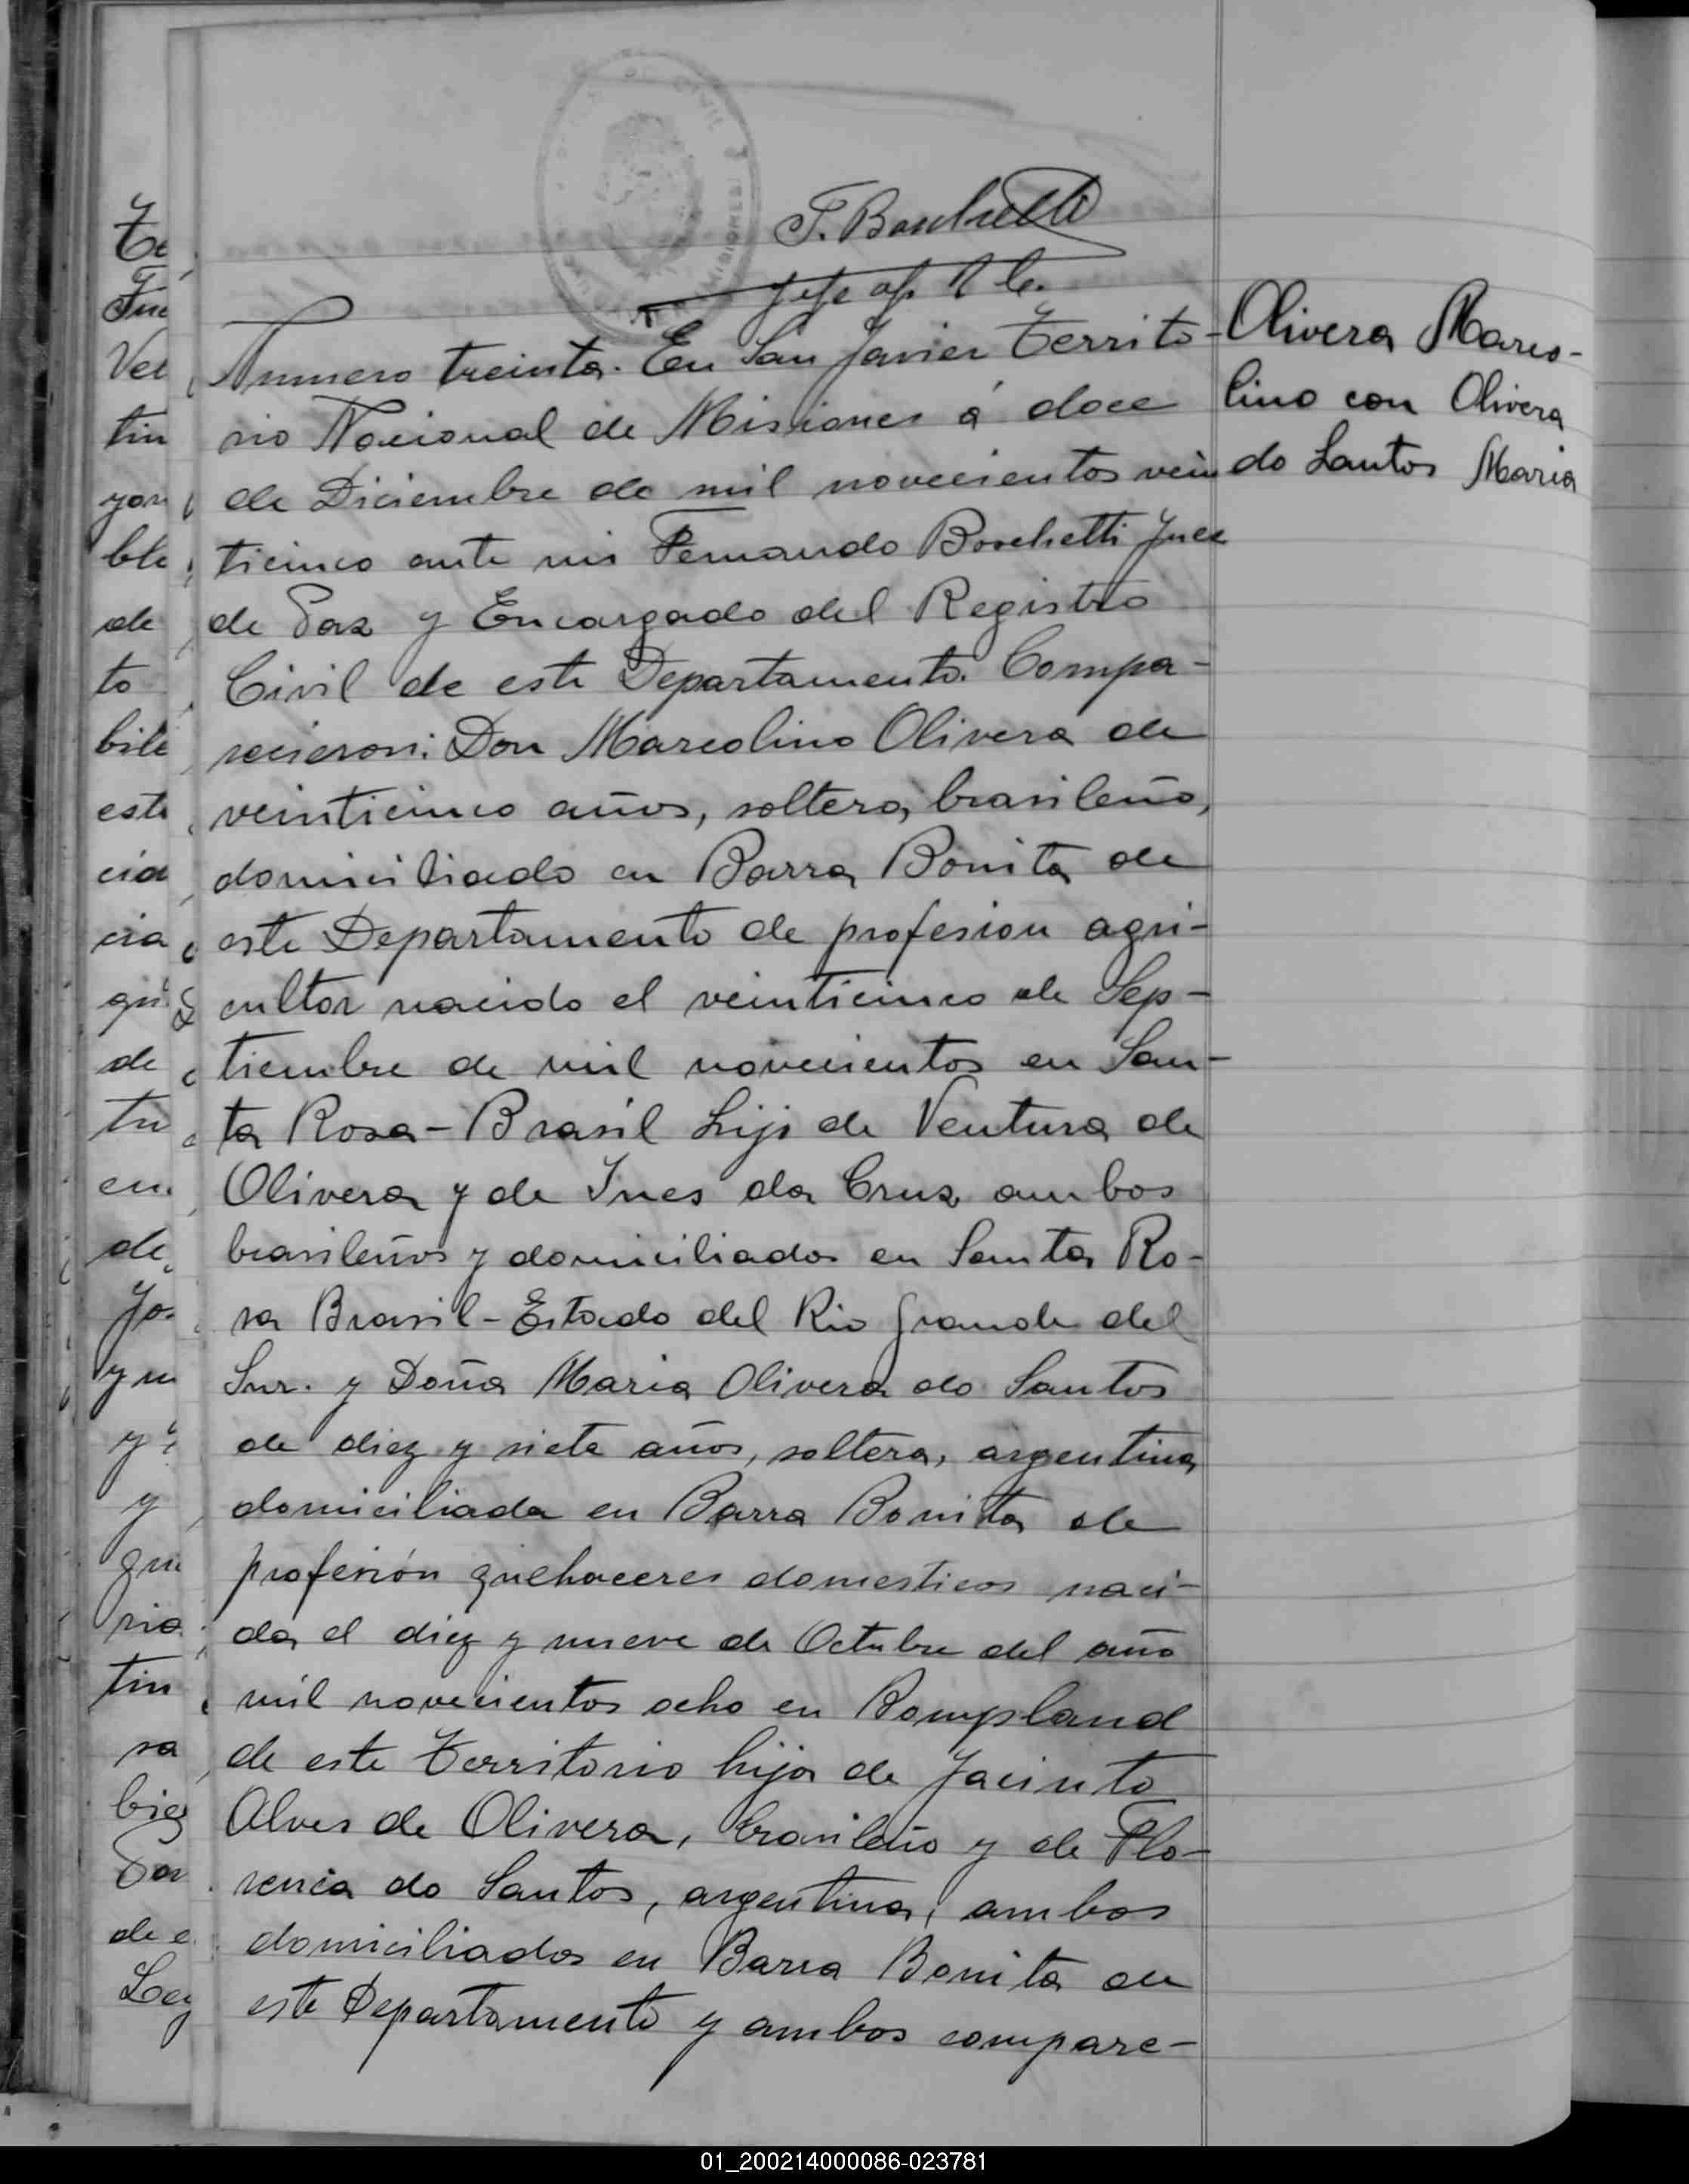 F. Boschetti
Jefe of. R. C.
Olivera Marco-
lino con Olivera
do Santos Maria
Numero treinta. En San Javier Territo-
rio Nacional de Misiones á doce
de Diciembre de mil novecientos vein
ticinco ante mi Fernando Boschetti Juez
de Paz y Encargado del Registro
Civil de este Departamento. Compa-
recieron: Don Marcolino Olivera de
veinticinco años, soltero, brasileño,
domiciliado en Barra Bonita de
este Departamento de profesion agri-
cultor nacido el veinticinco de Sep-
tiembre de mil novecientos en San-
ta Rosa - Brasil hijo de Ventura de
Olivera y de Ines da Cruz ambos
brasileños y domiciliados en Santa Ro-
sa Brasil - Estado del Rio Grande del
Sur. y Doña Maria Olivera do Santos
de diez y siete años, soltera, argentina,
domiciliada en Barra Bonita de
profesión quehaceres domesticos naci-
da el diez y nueve de Octubre del año
mil novecientos ocho en Bompland
de este Territorio hija de Jacinto
Alves de Olivera, brasileño y de Flo-
rencia do Santos, argentina, ambos
domiciliados en Barra Bonita de
este Departamento y ambos compare-
Fue
Vei
tin
yor
ble
de
to
bile
este
cia
cia
de
en
de
Jo
y
qu
ria
tin
sa
de e
Ley
MISIONES
01_200214000086-023781